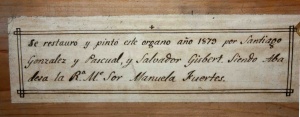 Se restauro y pintó este organo año 1879 por Santiago
Gonzalez y Pascual, y Salvador Gisbert. Siendo Aba
desa la R.ª M.ᵉ Sor Manuela Fuertes.